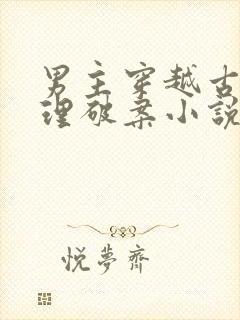 男主穿越古
理破案小說
悅夢齋